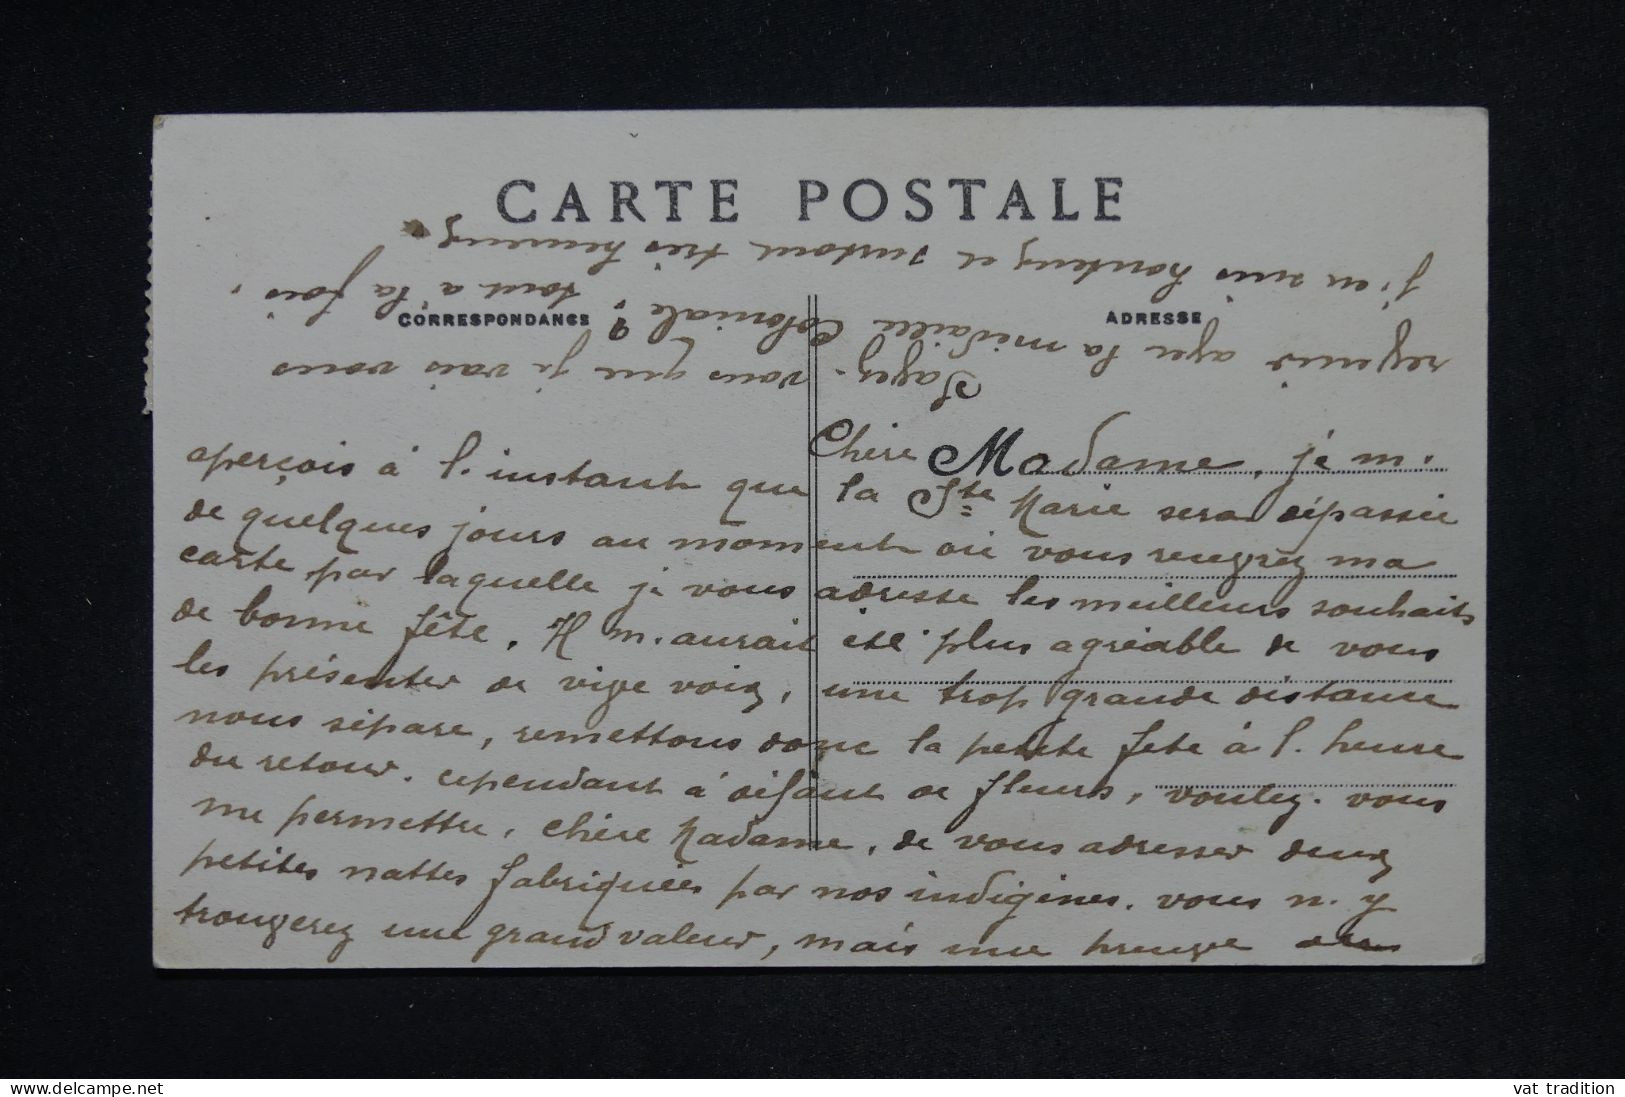 CARTE POSTALE
CORRESPONDANCE
ADRESSE
Chère Madame, je m'
aperçois à l'instant que la Ste Marie sera dépassée
de quelques jours au moment où vous recevrez ma
carte par laquelle je vous adresse les meilleurs souhaits
de bonne fête. Il m'aurait été plus agréable de vous
les présenter de vive voix, une trop grande distance
nous sépare, remettons donc la petite fête à l'heure
du retour. cependant à défaut de fleurs, voulez-vous
me permettre, chère Madame, de vous adresser deux
petites nattes fabriquées par nos indigènes. vous n'y
trouverez une grand valeur, mais une preuve
Savez-vous que je vais vous
revenir avec la médaille Coloniale?
J'en suis honteux et surtout très heureux
tout à la fois.
vat tradition
www.delcampe.net